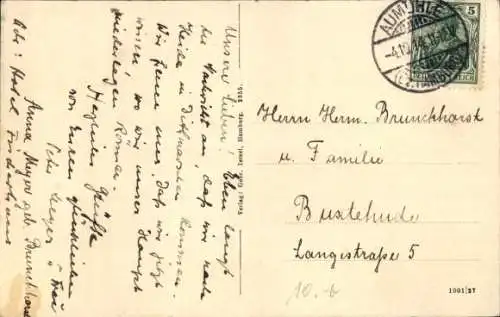 Unsere Lieben! Eben langt
die Nachricht an, daß wir nach
Heide in Dithmarschen kommen.
Wir freuen uns, daß wir jetzt
wissen, wo wir unser Haupt
niederlegen können.
Herzliche Grüße
von Euren glücklichen
Meyer u. Frau
Anna Meyer geb. Brunckhorst
Adr.: Hotel
Verlag: Gebr. Hamburg
AUMÜHLE
-4.10.
5
REICH
Herrn Herm. Brunckhorst
u. Familie
Buxtehude
Langestraße 5
10.-
1991